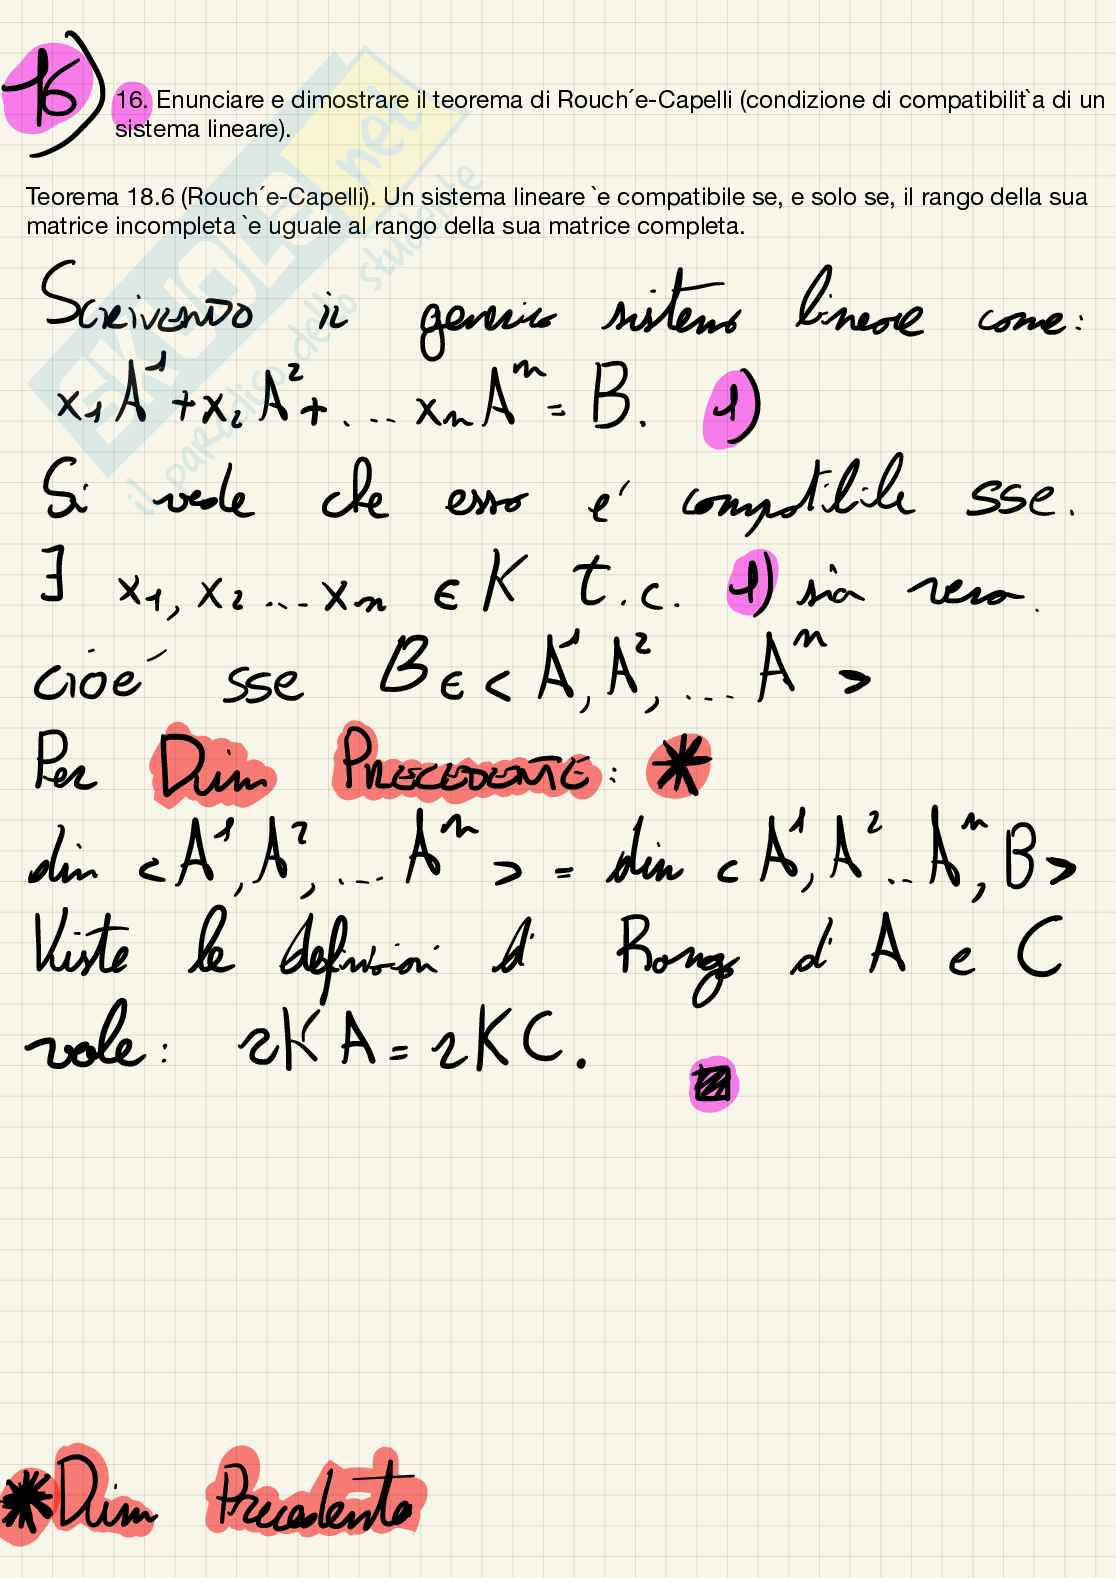 16)
16. Enunciare e dimostrare il teorema di Rouch´e-Capelli (condizione di compatibilit`a di un
sistema lineare).
Teorema 18.6 (Rouch´e-Capelli). Un sistema lineare `e compatibile se, e solo se, il rango della sua
matrice incompleta `e uguale al rango della sua matrice completa.
SCRIVENDO il generico sistema lineare come:
x₁A¹+x₂A²+....xₙAⁿ=B. 1)
Si vede che esso e' compatibile sse.
∃ x₁,x₂...xₙ ∈ K T.c. 1) sia vera.
cioè sse B∈<A¹,A²,...Aⁿ>
Per Dim PRECEDENTE: *
dim <A¹,A²,...Aⁿ> = dim <A¹,A²..Aⁿ,B>
Viste le definizioni di Rango di A e C
vale: rKA=rKC.
*Dim Precedente
SKUOLA.net
il paradiso dello studente